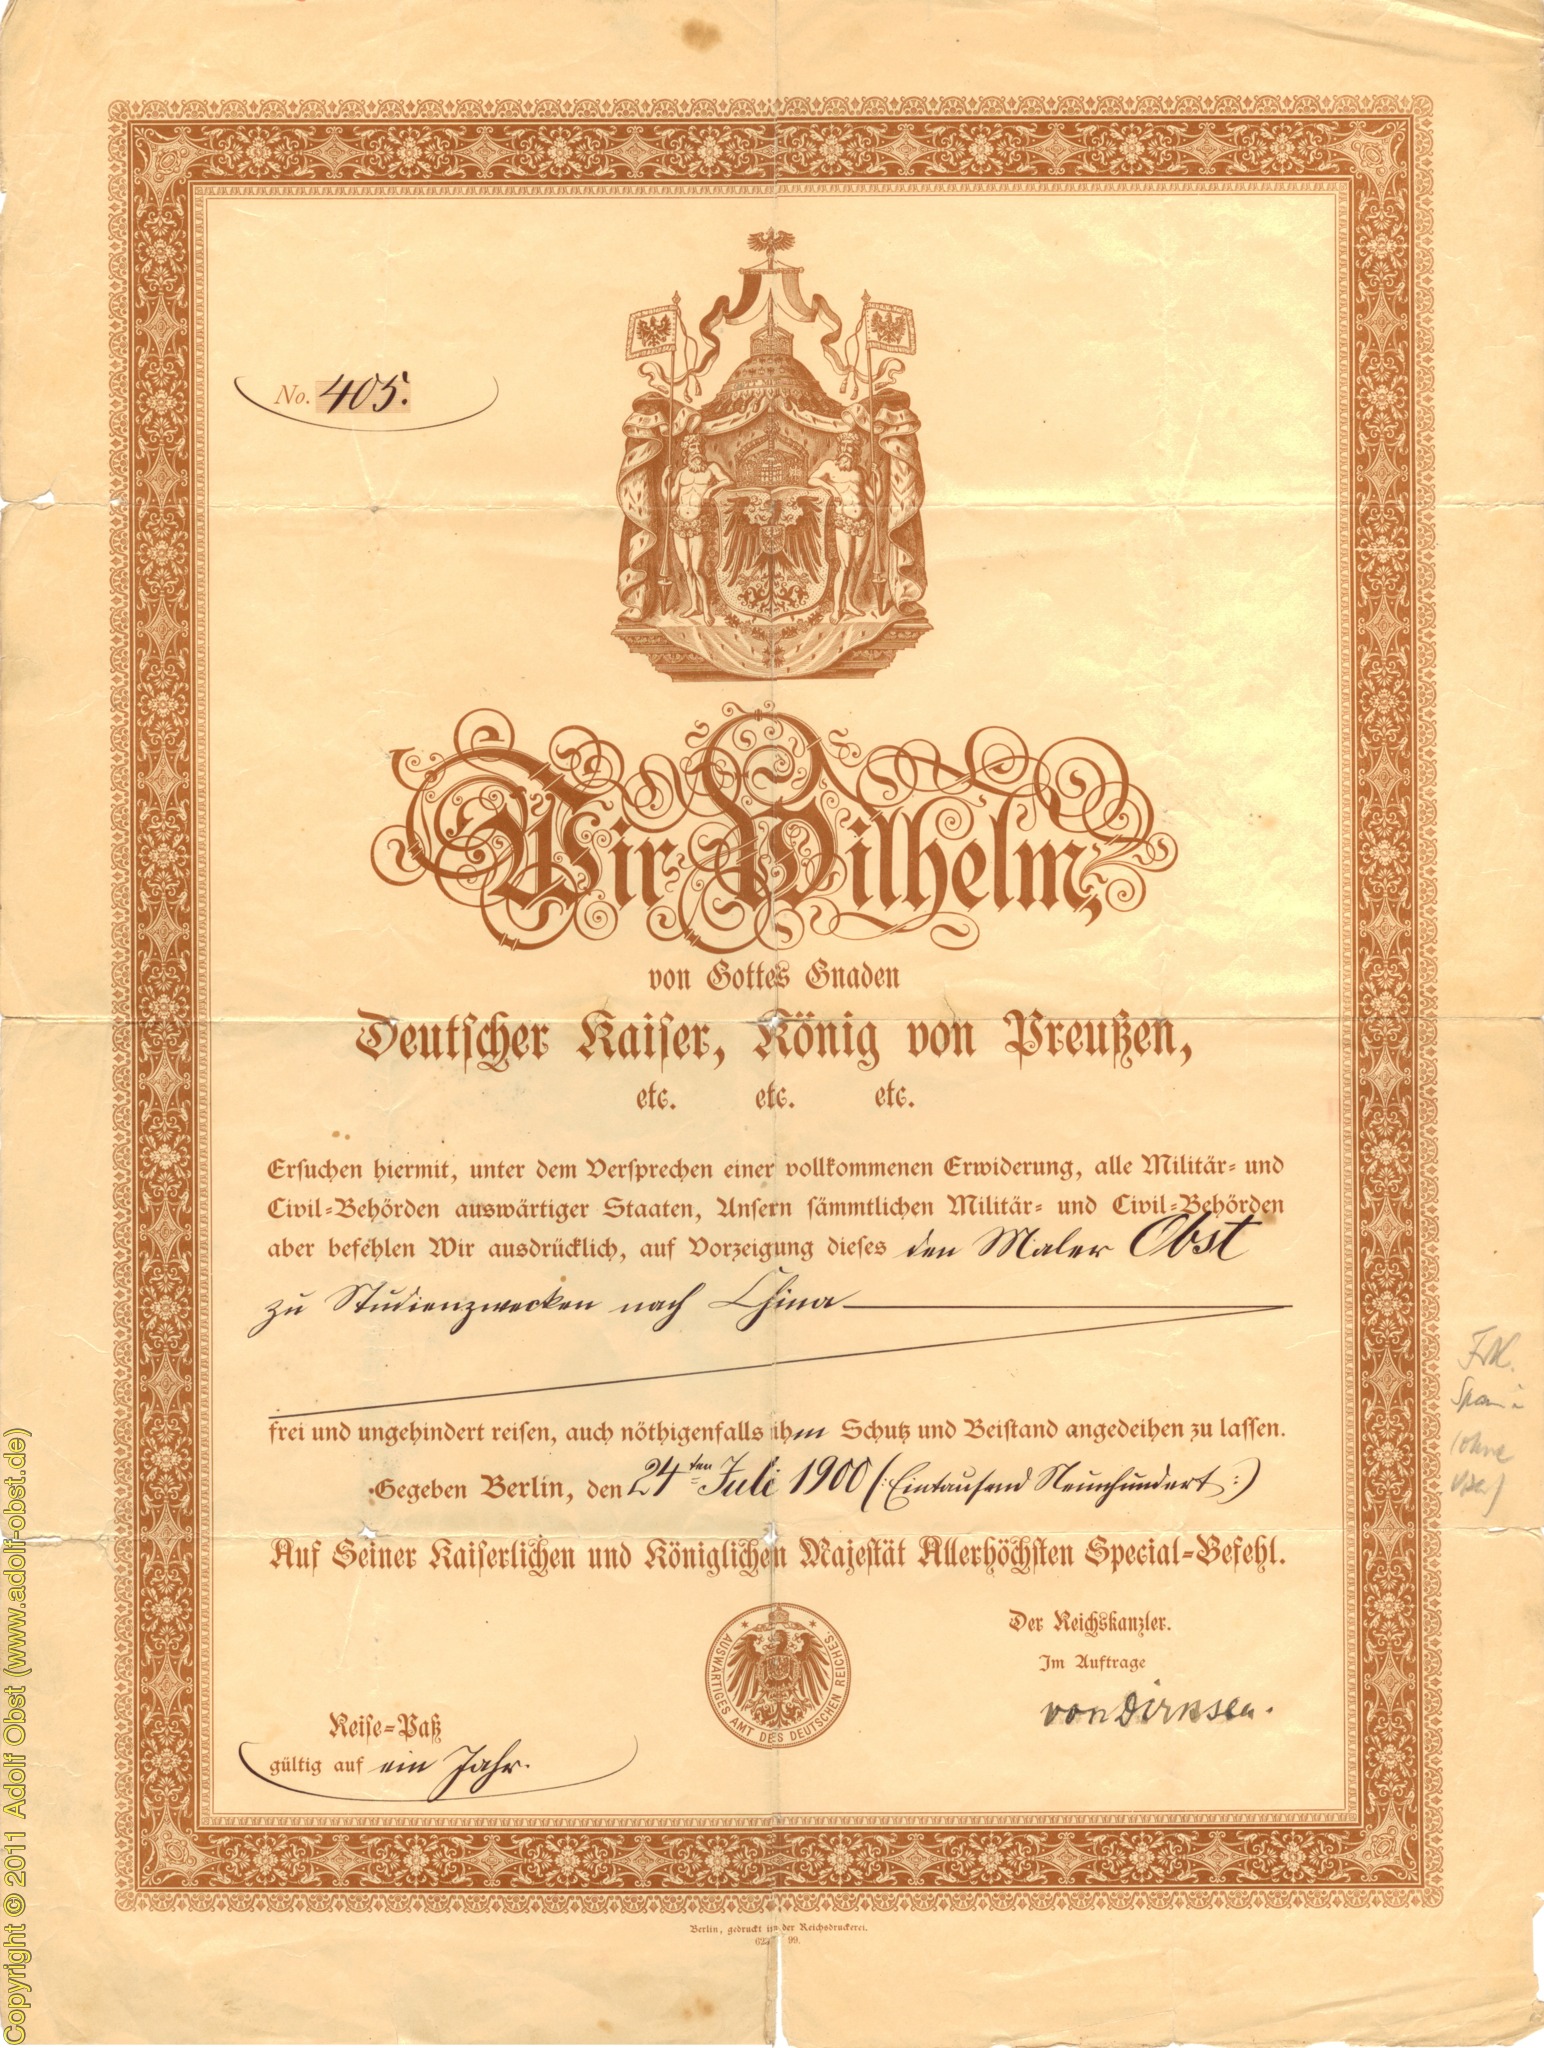 No. 405.
Wir Wilhelm,
von Gottes Gnaden
Deutscher Kaiser, König von Preußen,
etc. etc. etc.
Ersuchen hiermit, unter dem Versprechen einer vollkommenen Erwiderung, alle Militär- und
Civil-Behörden auswärtiger Staaten, Unsern sämmtlichen Militär- und Civil-Behörden
aber befehlen Wir ausdrücklich, auf Vorzeigung dieses den Maler Obst
zu Studienzwecken nach China
frei und ungehindert reisen, auch nöthigenfalls ihm Schutz und Beistand angedeihen zu lassen.
Gegeben Berlin, den 24ten Juli 1900 (: Eintausend Neunhundert :)
Auf Seiner Kaiserlichen und Königlichen Majestät Allerhöchsten Special-Befehl.
AUSWÄRTIGES AMT DES DEUTSCHEN REICHES.
Der Reichskanzler.
Im Auftrage
von
Reise-Paß
gültig auf ein Jahr.
Berlin, gedruckt in der Reichsdruckerei.
99.
(ohne
Copyright © 2011 Adolf Obst (www.adolf-obst.de)